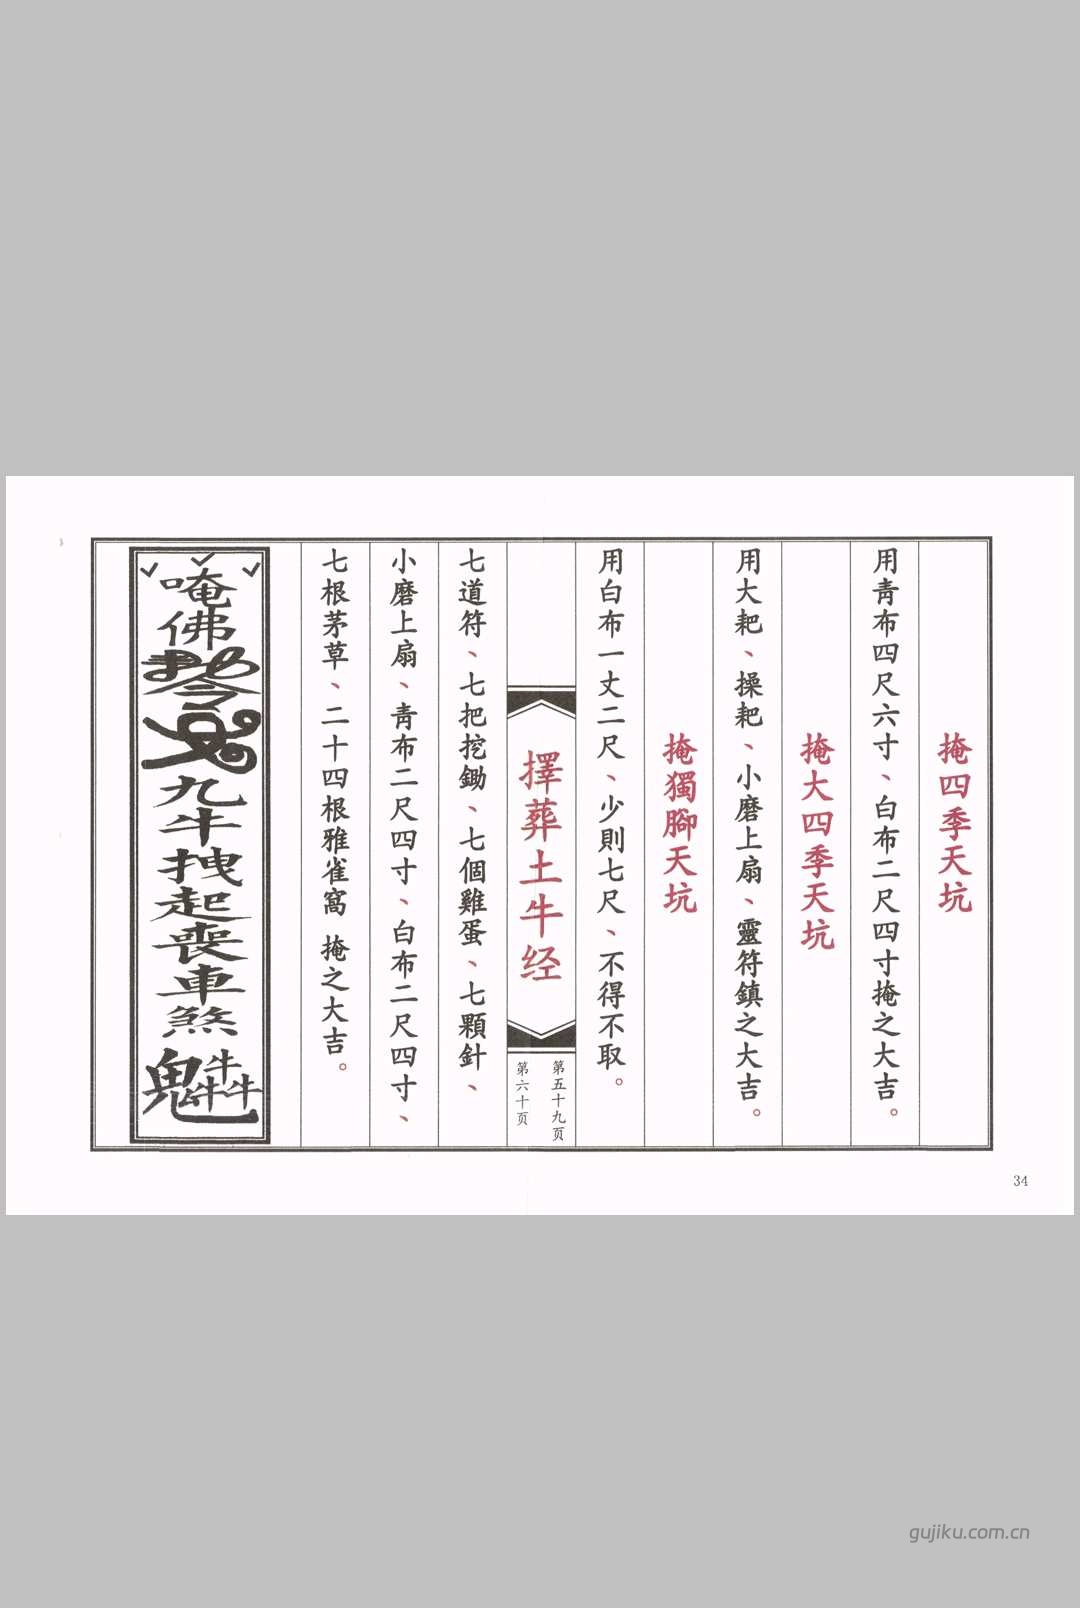 掩四季天坑
用青布四尺六寸、白布二尺四寸掩之大吉。
掩大四季天坑
用大耙、操耙、小磨上扇、靈符鎮之大吉。
掩獨腳天坑
用白布一丈二尺、少則七尺、不得不取。
擇葬土牛经
第五十九页
第六十页
七道符、七把挖鋤、七個雞蛋、七顆針、
小磨上扇、青布二尺四寸、白布二尺四寸、
七根茅草、二十四根雅雀窩 掩之大吉。
唵佛
九牛拽起喪車煞
34
gujiku.com.cn